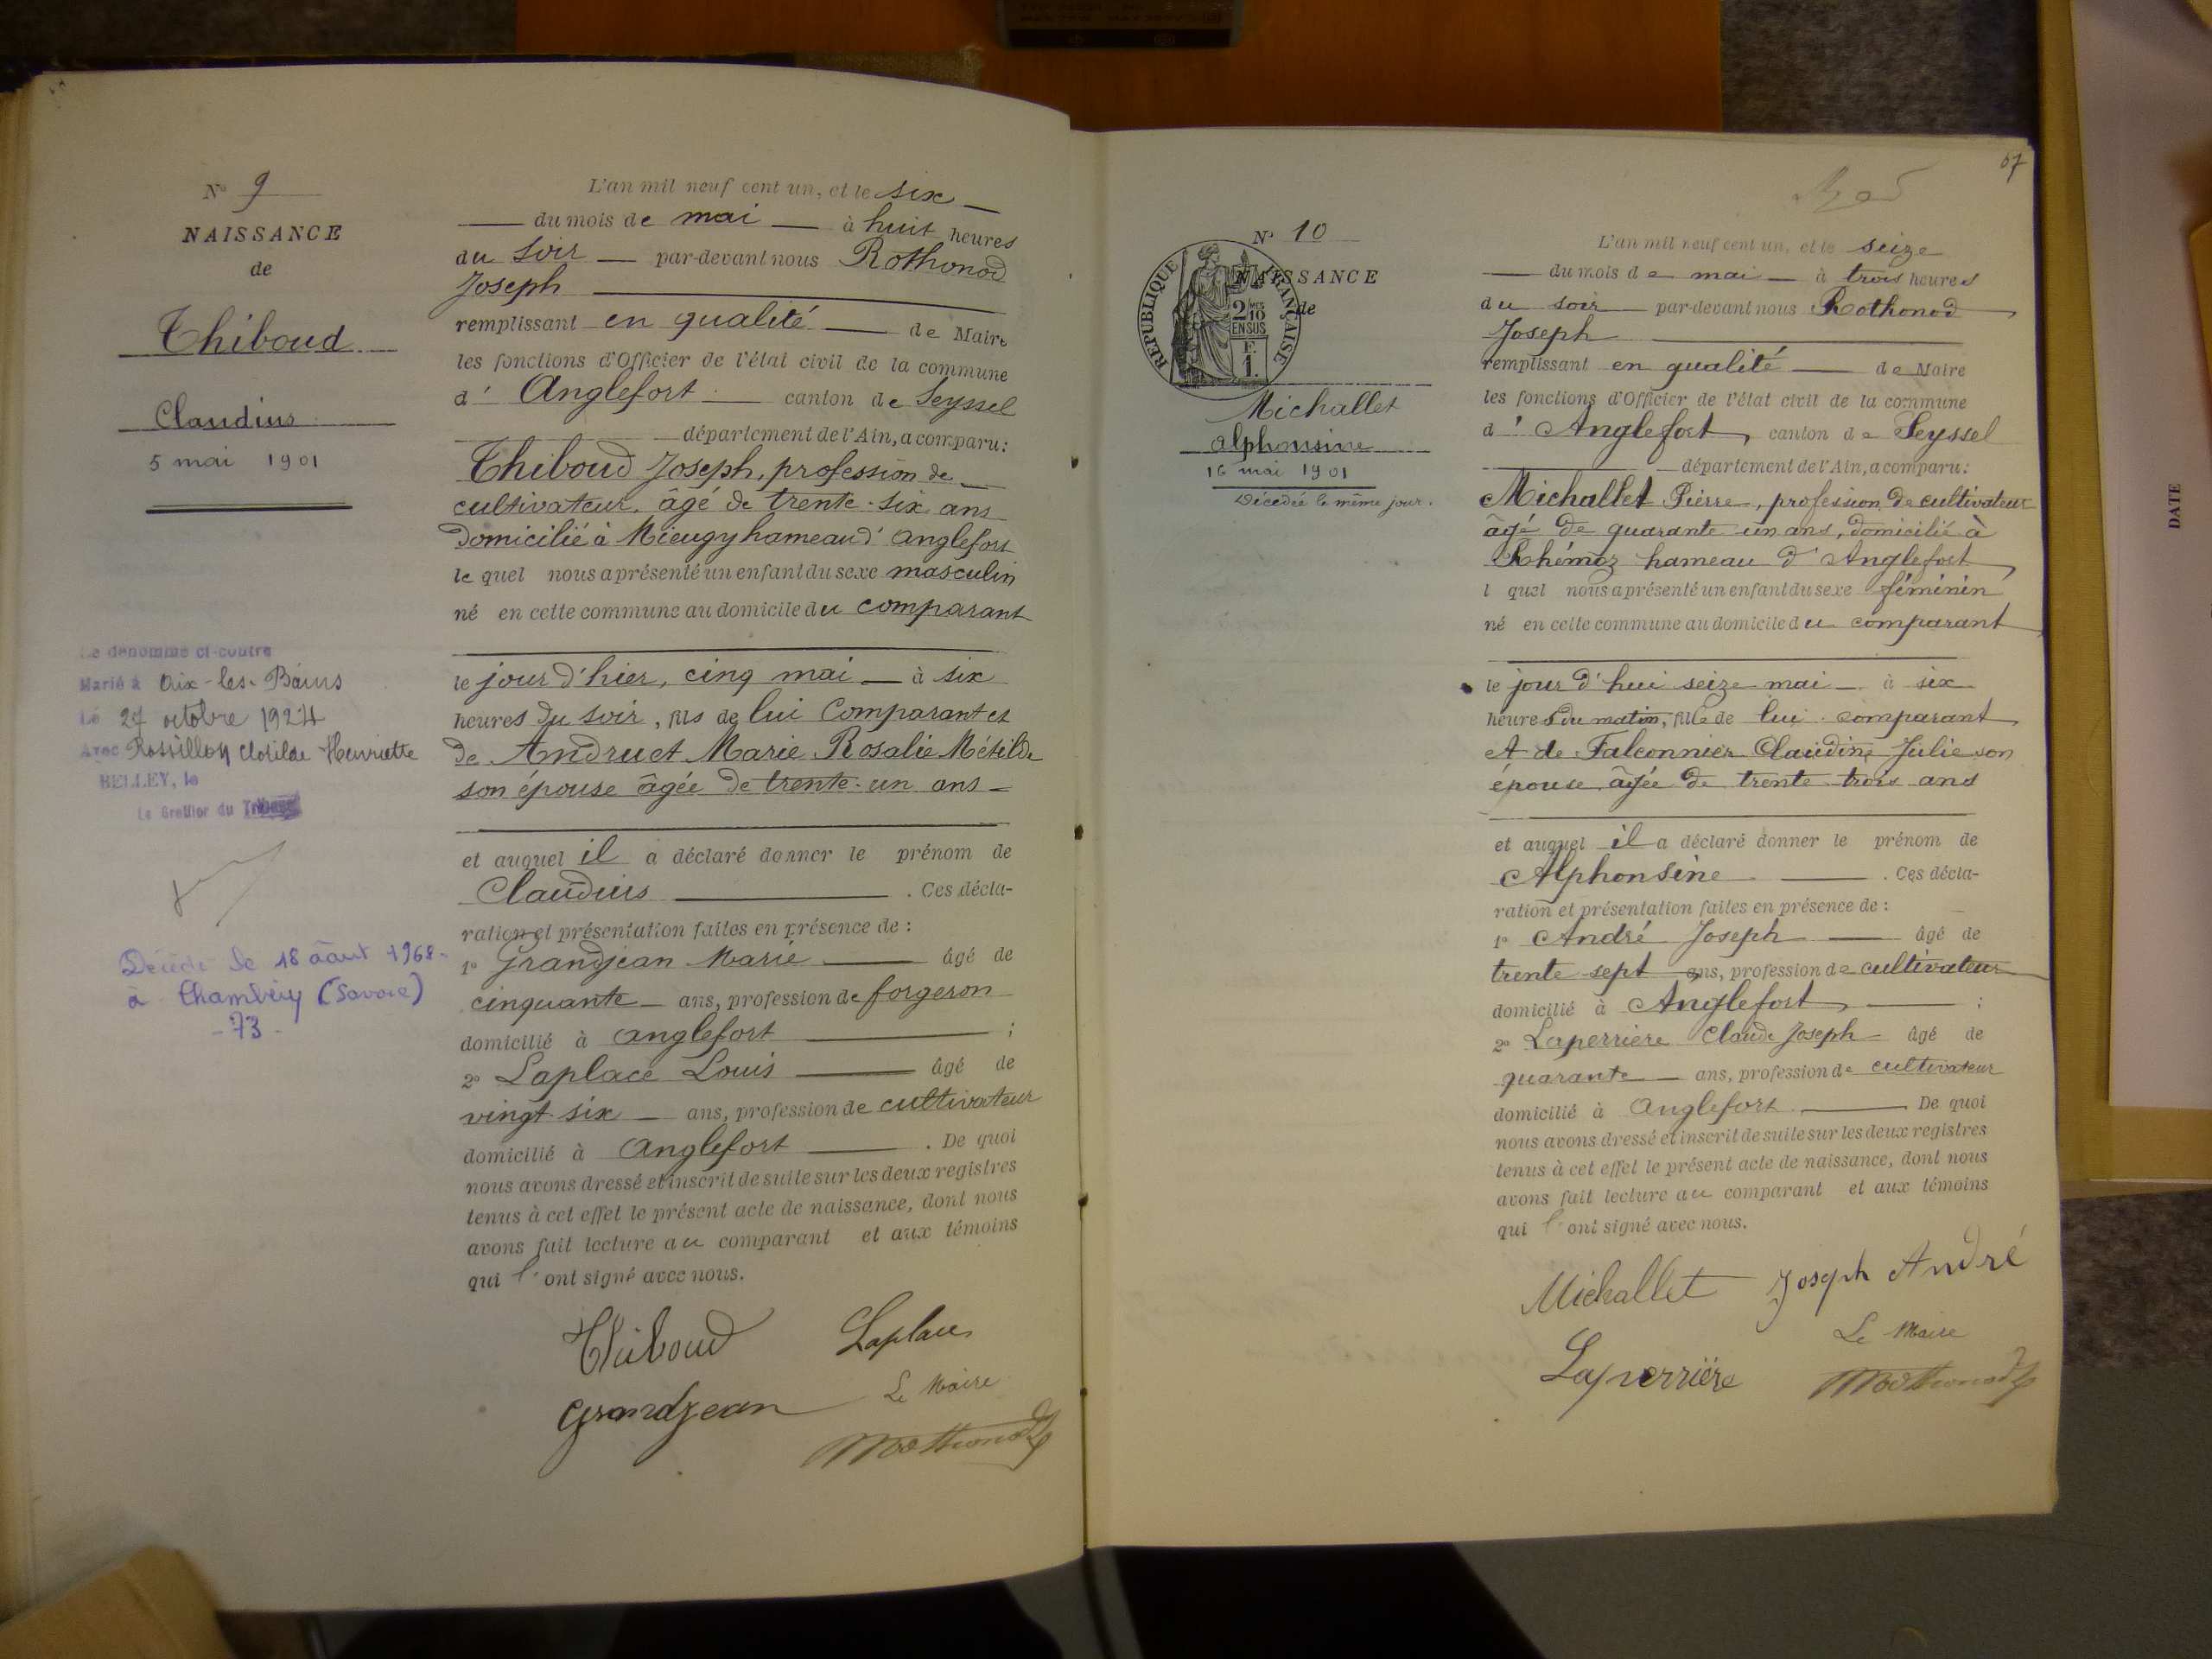 N° 9
NAISSANCE
de
Thiboud
Claudius
5 mai 1901
Le dénommé ci-contre
Marié à Aix-les-Bains
Le 27 octobre 1924
Avec Rossillon Clotilde Henriette
BELLEY, le
Le Greffier du
Décédé le 18 août 1968
à Chambéry (Savoie)
- 73 -
L'an mil neuf cent un, et le six
du mois de mai à huit heures
du soir par-devant nous Rothonod
Joseph
remplissant en qualité de Maire
les fonctions d'Officier de l'état civil de la commune
d' Anglefort canton de Seyssel
département de l'Ain, a comparu:
Thiboud Joseph, profession de
cultivateur, âgé de trente-six ans
domicilié à Mieugy hameau d'anglefort
le quel nous a présenté un enfant du sexe masculin
né en cette commune au domicile du comparant
le jour d'hier, cinq mai à six
heures du soir, fils de lui Comparant et
de Andruet Marie Rosalie Métilde
son épouse âgée de trente-un ans
et auquel il a déclaré donner le prénom de
Claudius . Ces décla-
ration et présentation faites en présence de :
1° Grandjean Marie âgé de
cinquante ans, profession de forgeron
domicilié à anglefort ;
2° Laplace Louis âgé de
vingt six ans, profession de cultivateur
domicilié à anglefort . De quoi
nous avons dressé et inscrit de suite sur les deux registres
tenus à cet effet le présent acte de naissance, dont nous
avons fait lecture au comparant et aux témoins
qui l'ont signé avec nous.
Thiboud Laplace
Grandjean Le Maire
Rothonod
57
N° 10
NAISSANCE
de
RÉPUBLIQUE FRANÇAISE
2/10
EN SUS
F.
1.
Michallet
alphonsine
16 mai 1901
Décédée le même jour.
L'an mil neuf cent un, et le seize
du mois de mai à trois heures
du soir par-devant nous Rothonod
Joseph
remplissant en qualité de Maire
les fonctions d'Officier de l'état civil de la commune
d' Anglefort, canton de Seyssel
département de l'Ain, a comparu:
Michallet Pierre, profession de cultivateur
âgé de quarante un ans, domicilié à
Rhémoz hameau d'Anglefort
l quel nous a présenté un enfant du sexe féminin
né en cette commune au domicile du comparant
le jour d'hui seize mai à six
heures du matin, fille de lui comparant
et de Falconnier Claudine Julie son
épouse âgée de trente trois ans
et auquel il a déclaré donner le prénom de
Alphonsine . Ces décla-
ration et présentation faites en présence de :
1° André Joseph âgé de
trente sept ans, profession de cultivateur
domicilié à Anglefort ;
2° Laperrière Claude Joseph âgé de
quarante ans, profession de cultivateur
domicilié à anglefort De quoi
nous avons dressé et inscrit de suite sur les deux registres
tenus à cet effet le présent acte de naissance, dont nous
avons fait lecture au comparant et aux témoins
qui l'ont signé avec nous.
Michallet Joseph André
Le Maire
Laperrière Rothonod
DATE